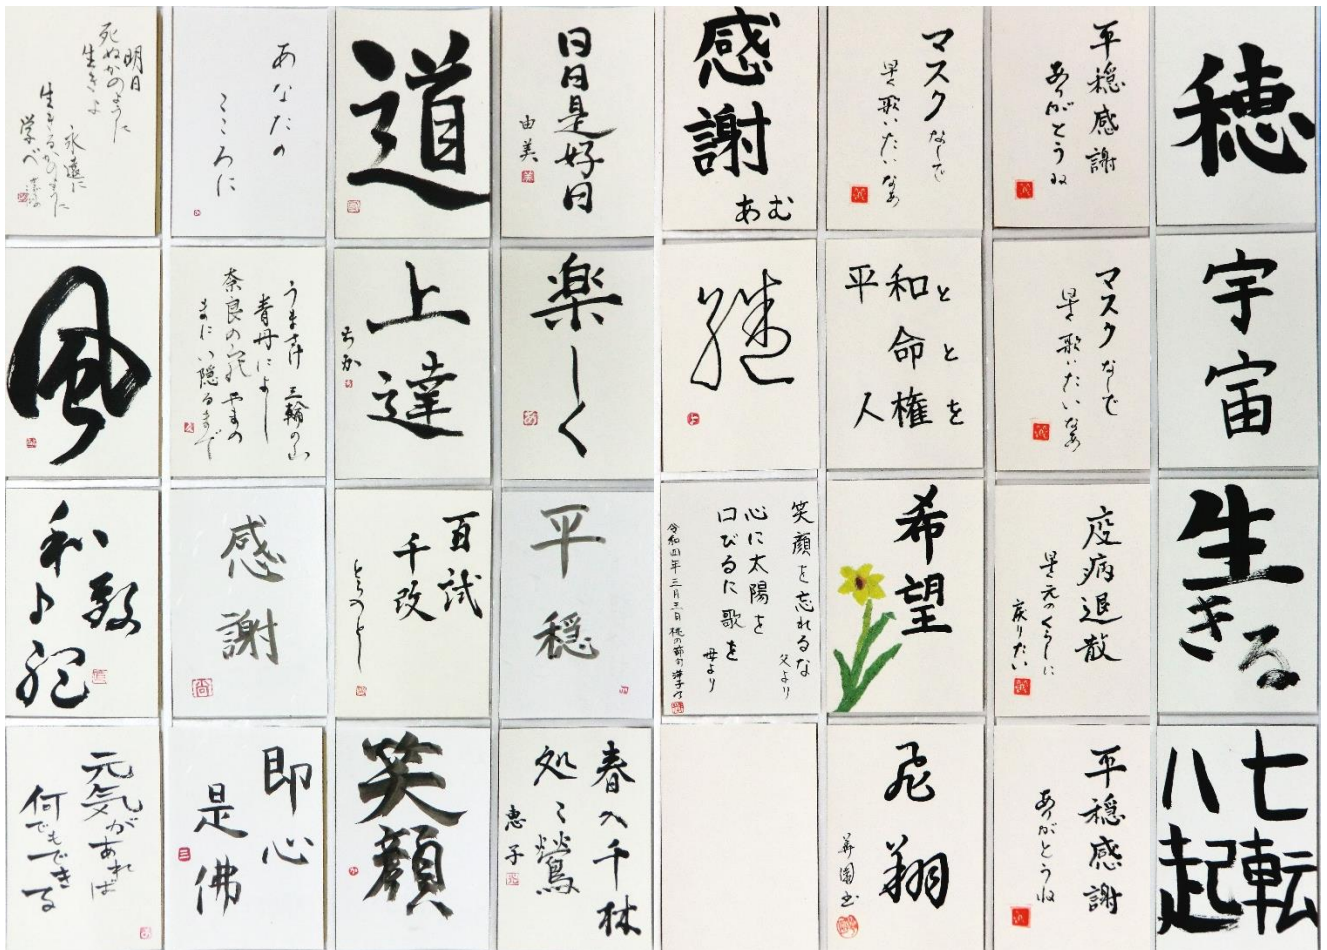 明日
死ぬかのように
生きよ
永遠に
生きるかのように
学べ
あなたの
こころに
道
日日是好日
由美
感謝
あむ
マスクなしで
早く歌いたいなあ
平穏感謝
ありがとうね
穂
風
うまさけ 三輪の山
青丹によし
奈良の山の やまの
まに い隠るまで
上達
楽しく
継
平和と
命と
人権を
マスクなしで
早く歌いたいなあ
宇宙
感謝
百試
千改
とらのとし
平穏
笑顔を忘れるな
父より
心に太陽を
口びるに歌を
母より
令和四年三月三日 桃の節句 洋子
希望
疫病退散
早く元のくらしに
戻りたい
生きる
元気があれば
何でもできる
即心
是佛
笑顔
春入千林
処々鶯
恵子
飛翔
平穏感謝
ありがとうね
七転
八起